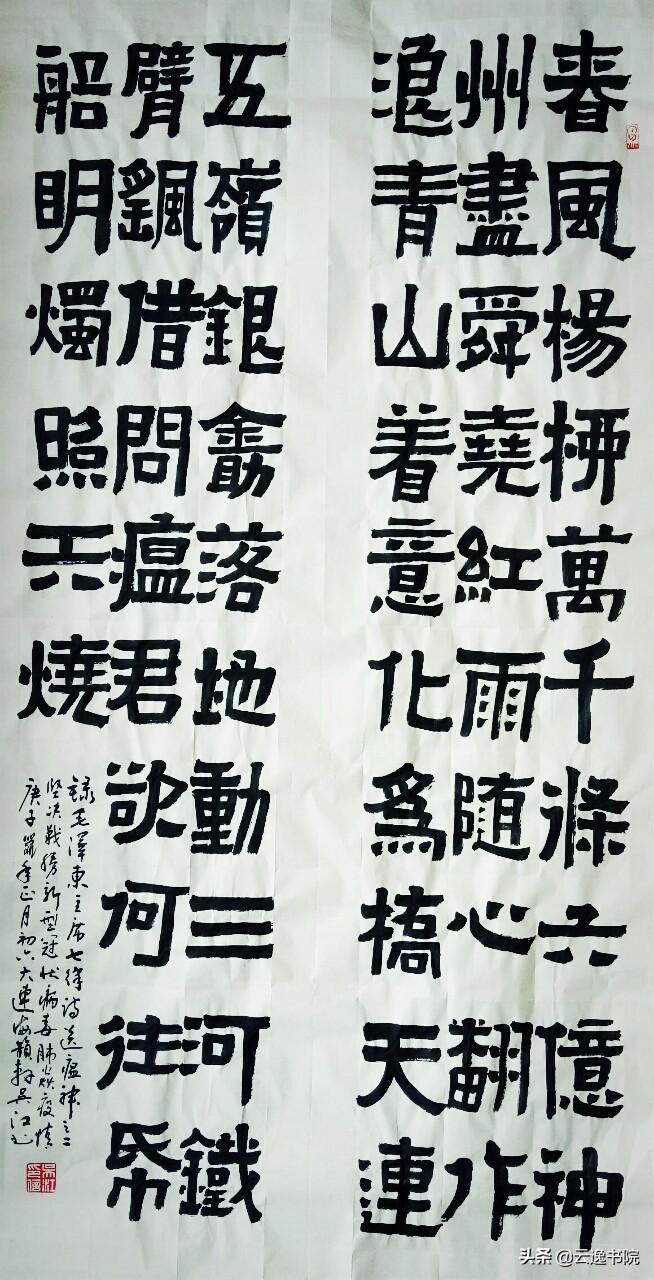 春風楊柳萬千條六億神
州盡舜堯紅雨随心翻作
浪青山着意化為橋天連
五嶺銀鋤落地動三河鐵
臂颻借問瘟君欲何往帋
船明燭照天燒
録毛澤東主席七律诗送瘟神之二
坚决戰勝新型冠状病毒肺炎疫情
庚子鼠年正月初六大連海韻軒吴江书
吴江印信
头条 @云逸书院